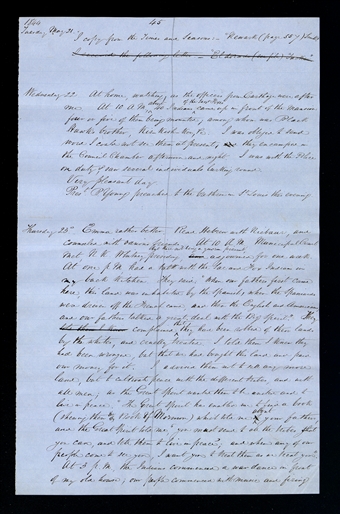 1844 45
Tuesday May 21. I copy from the Times and Seasons
I received the following letter
Wednesday 22 At home, watching, as the officers from Carthage were after
me. At 10 A.M. about 40 Indians came up in front of the Mansion
four or five of them being mounted, among whom was Black
Hawk's brother, Kis-kish-kee &c. I was obliged to send
word I could not see them at present, they encamped in
the Council Chamber afternoon and night. I was with the Police
on duty & our several retired walks walking round
Very pleasant day
Pres. B. Young preached to the brethren in St Louis this evening
Thursday 23d Emma rather better. Read Hebrew with Neibaur, and
counselled with various friends. At 10 A.M. Municipal Court
met, N. K. Whitney presiding adjourned for one week
At one P.M. has a talk with the Sac and Fox Indians in
my back kitchen. They said, "When our fathers first came
here, this land was inhabited by the Spanish; when the Spaniards
were driven off the French came, and then the English and Americans
and our fathers talked a great deal with the Big Spirit." They
complained that they had been robbed of their lands
by the whites, and cruelly treated. I told them I knew they
had been wronged, but that we had bought the land and paid
our money for it. I advised them not to sell any more
land, but to cultivate peace with the different tribes, and with
all men, as the Great Spirit wanted them to be united and to
live in peace. "The Great Spirit has enabled me to find a book
(showing them the Book of Mormon) which told me about your fathers
and the Great Spirit told me, 'you must send to all the tribes that
you can, and tell them to live in peace;' and when any of our
people come to see you, I want you to treat them as we treat you."
At 3 P.M. the Indians commenced a war dance in front
of my old house; our people commenced with music and firing